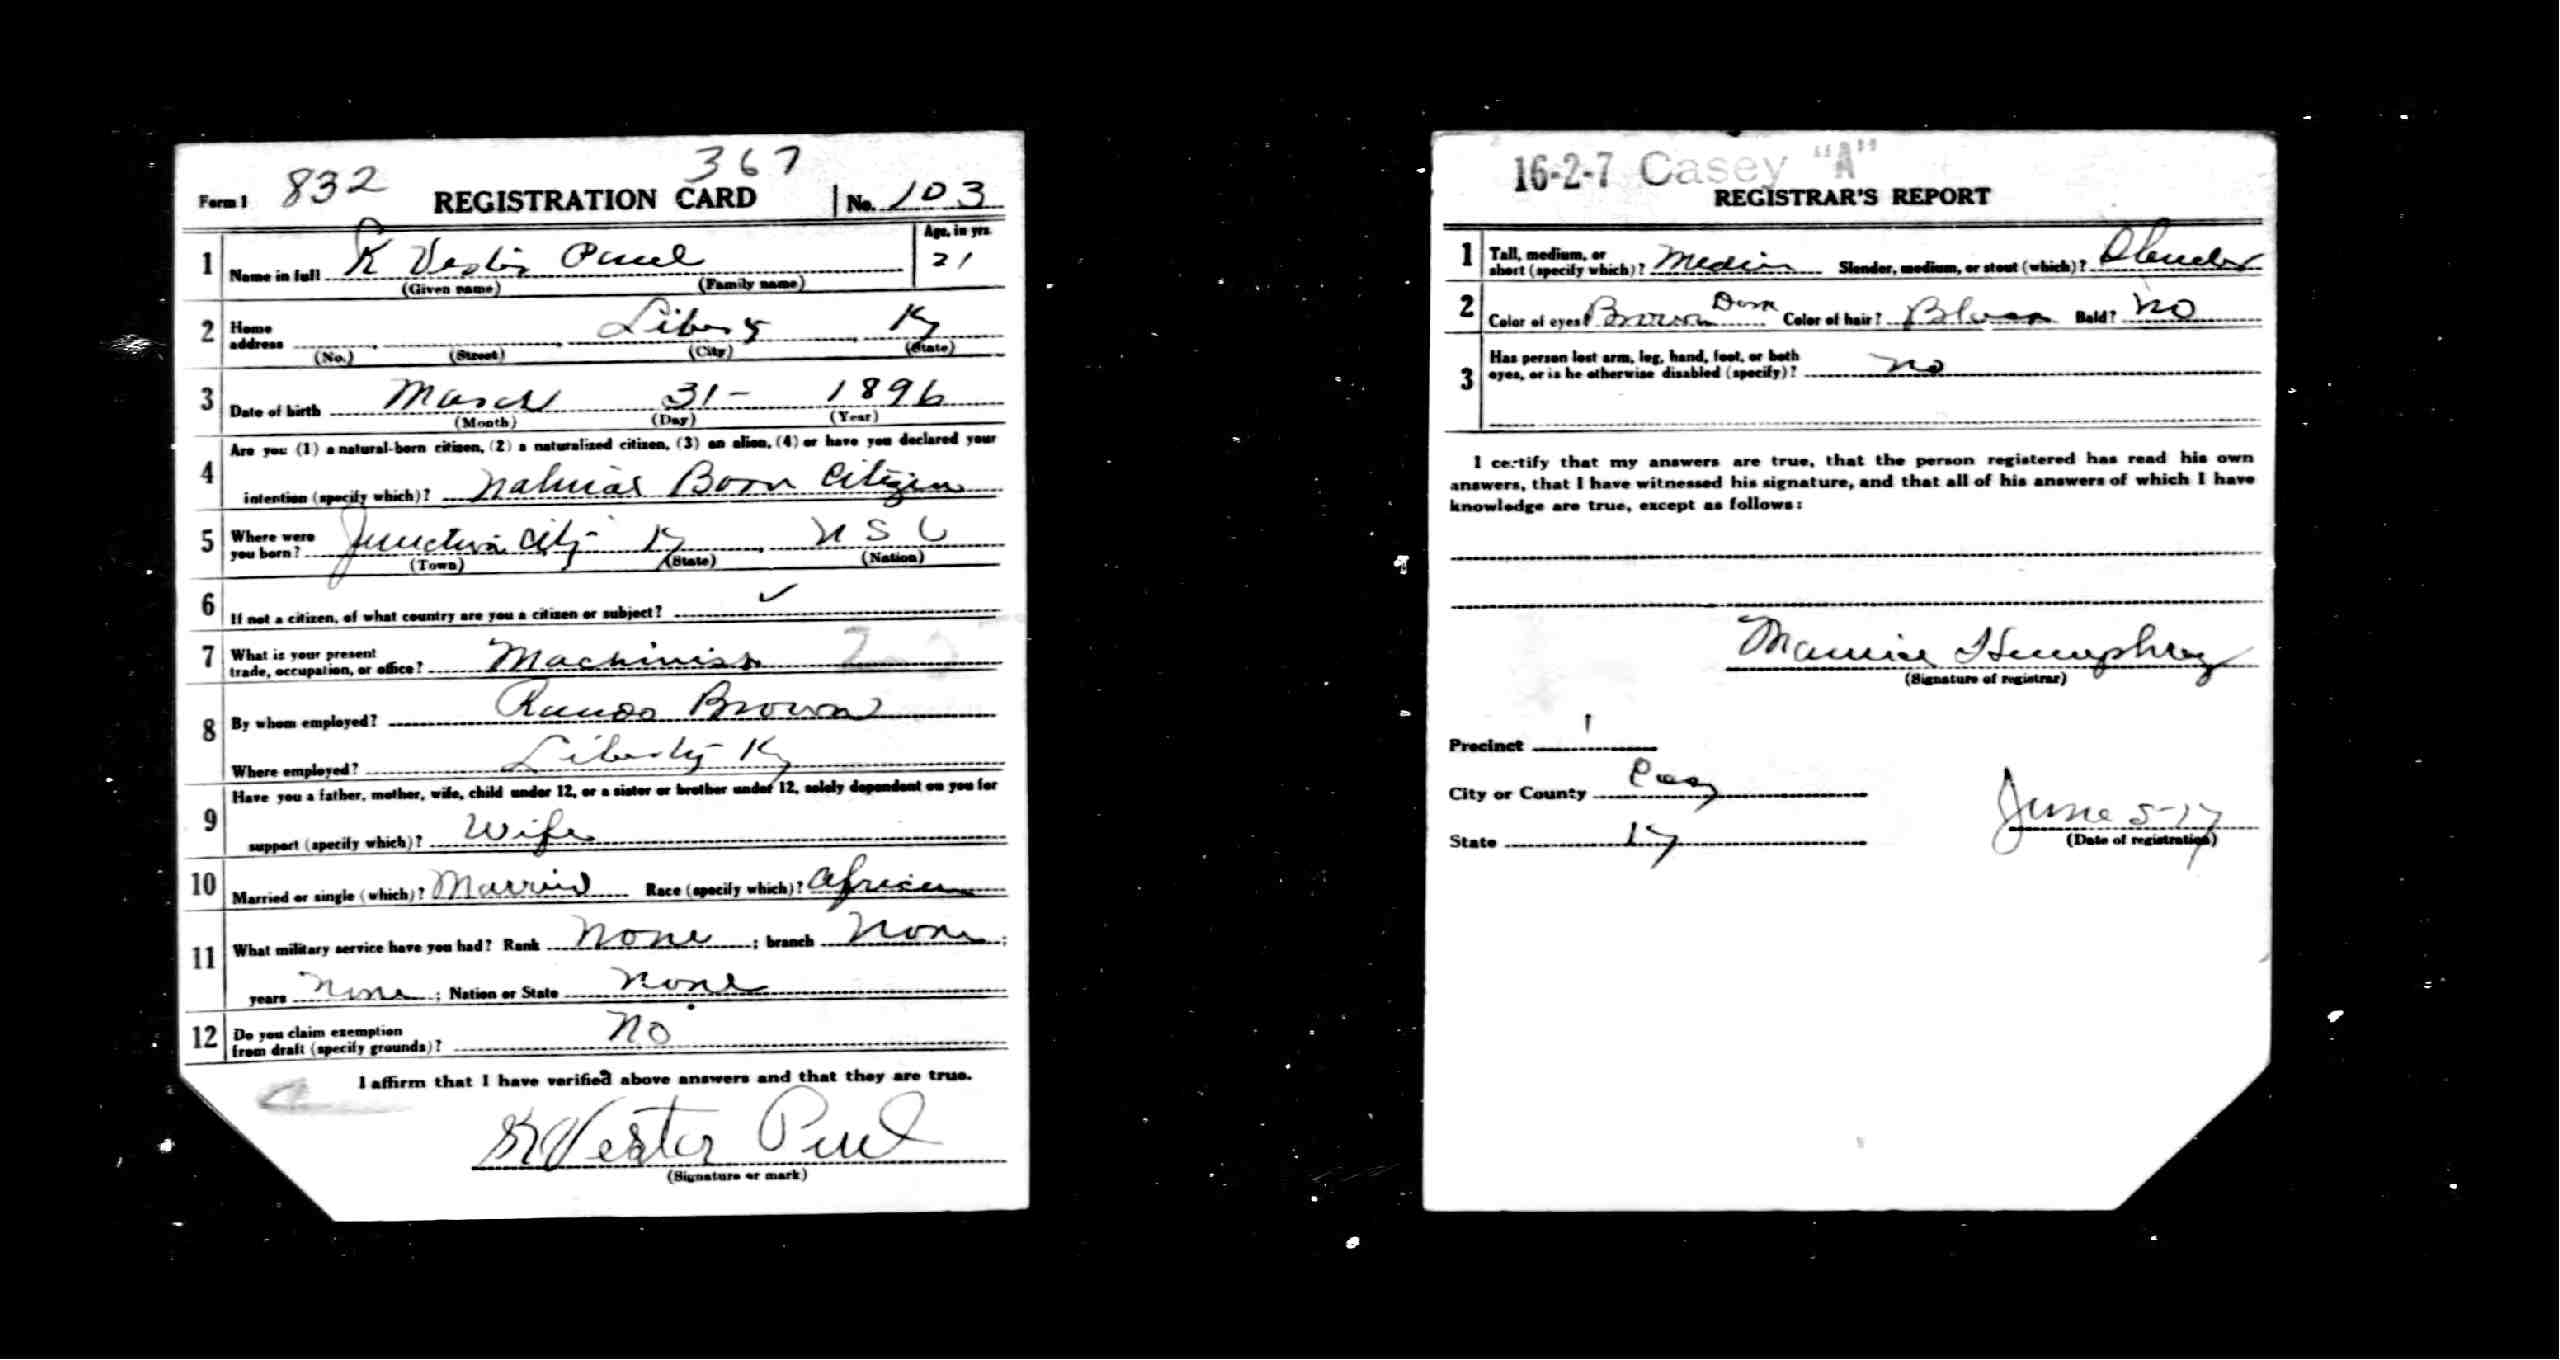 Form 1 832 REGISTRATION CARD 367 No. 103
1 Name in full K Vester Age, in yrs. 21
(Given name) (Family name)
2 Home address Liberty Ky
(No.) (Street) (City) (State)
3 Date of birth March 31- 1896
(Month) (Day) (Year)
4 Are you (1) a natural-born citizen, (2) a naturalized citizen, (3) an alien, (4) or have you declared your
intention (specify which)? Natural Born Citizen
5 Where were you born? Junction City Ky
(Town) (State) (Nation)
6 If not a citizen, of what country are you a citizen or subject? ✓
7 What is your present trade, occupation, or office? Machinist
8 By whom employed? Brown
Where employed? Liberty Ky
9 Have you a father, mother, wife, child under 12, or a sister or brother under 12, solely dependent on you for
support (specify which)? Wife
10 Married or single (which)? Married Race (specify which)? African
11 What military service have you had? Rank None ; branch None ;
years None ; Nation or State None
12 Do you claim exemption from draft (specify grounds)? No
I affirm that I have verified above answers and that they are true.
K Vester
(Signature or mark)
16-2-7 Casey "A"
REGISTRAR'S REPORT
1 Tall, medium, or short (specify which)? Medium Slender, medium, or stout (which)? Slender
2 Color of eyes? Brown Color of hair? Bald? No
3 Has person lost arm, leg, hand, foot, or both
eyes, or is he otherwise disabled (specify)? No
I certify that my answers are true, that the person registered has read his own
answers, that I have witnessed his signature, and that all of his answers of which I have
knowledge are true, except as follows:
Maurice Humphrey
(Signature of registrar)
Precinct 1
City or County Casey
State Ky
June 5-17
(Date of registration)